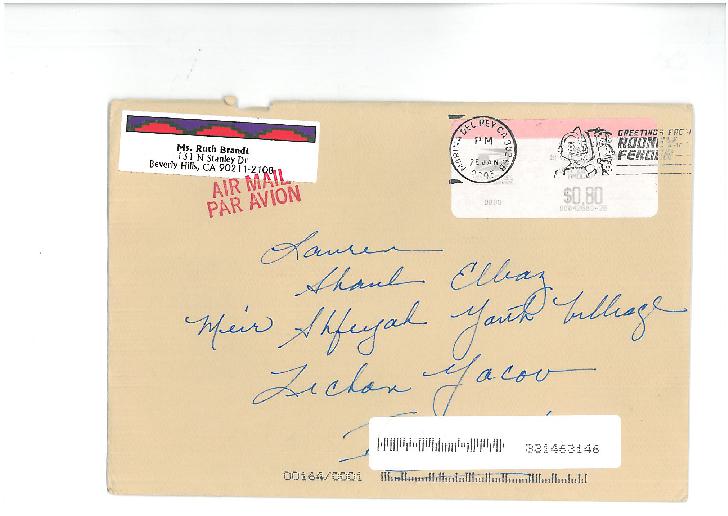 Ms. Ruth Brandt
151 N Stanley Dr
Beverly Hills, CA 90211-2108
AIR MAIL
PAR AVION
MARINA DEL REY CA
PM
GREETINGS FROM
$0.80
Lauren
Shaul Elbaz
Meir Shfeyah Youth Village
Zichon Yacov
331463146
00164/0001